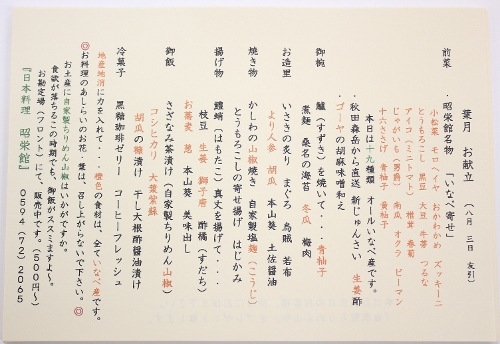 葉月 お献立 (八月 三日 友引)
前菜 ・昭栄館名物 「いなべ寄せ」
小松菜 モロヘイヤ おかわかめ ズッキーニ
とうもろこし 黒豆 大豆 牛蒡 つるな
アイコ(ミニトマト) 椎茸 春菊
じゃがいも(男爵) 南瓜 オクラ ピーマン
十六ささげ 青柚子 黄柚子
本日は十九種類 オールいなべ産です。
・秋田森岳から直送 新じゅんさい 生姜酢
・ゴーヤの胡麻味噌和え
御椀 鱸(すずき)を焼いて・・・・青柚子
煮麺 桑名の海苔 冬瓜 梅肉
お造里 いさきの炙り まぐろ 烏賊 若布
より人参 胡瓜 本山葵 土佐醤油
焼き物 かしわの山椒焼き 自家製塩麹(こうじ)
とうもろこしの寄せ揚げ はじかみ
揚げ物 鱧蛸(はもたこ)真丈を揚げて・・・・
枝豆 生姜 獅子唐 酢橘(すだち)
お蕎麦 葱 本山葵 美味出し
御飯 さざなみ茶漬け(自家製ちりめん山椒)
コシヒカリ 大葉紫蘇
胡瓜の糠漬け 干し大根酢醤油漬け
冷菓子 黒糖珈琲ゼリー コーヒーフレッシュ
地産地消に力を入れて・・・・橙色の食材は、全ていなべ産です。
◎お料理のあしらいのお花、葉は、召し上がらないで下さい。◎
お土産に自家製ちりめん山椒はいかがですか。
食欲が落ちるこの時期でも、御飯がススミますよ〜。
お勘定場(フロント)にて、販売中です。(500円〜)
『日本料理 昭栄館』 0594(72)2065